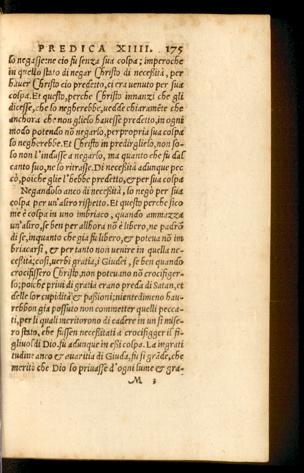 PREDICA XIIII. 175
lo negasse: ne cio fu senza sua colpa; imperoche
in quello stato di negar Christo di necessità, per
hauer Christo cio predetto, ci era venuto per sua
colpa. Et questo, perche Christo innanzi che gli
dicesse, che lo negherebbe, uedde chiaramēte che
anchora che non glielo hauesse predetto, in ogni
modo potendo nō negarlo, per propria sua colpa
lo negherebbe. Et Christo in predirglielo, non so-
lo non l'indusse a negarlo, ma quanto che fu dal
canto suo, ne lo ritrasse. Di necessità dunque pec
cò, poiche glie l'hebbe predetto, & per sua colpa
Negandolo anco di necessità, lo negò per sua
colpa per un'altro rispetto. Et questo perche sico
me è colpa in uno imbriaco, quando ammazza
un'altro, se ben per allhora nō è libero, ne padrō
di se, inquanto che gia fu libero, & poteua nō im
briacarsi, & per tanto non uenire in quella ne-
cessità; così, uerbi gratia, i Giudei, se ben quando
crocifissero Christo, non poteuano nō crocifiger-
lo; poiche priui di gratia erano preda di Satan, et
delle lor cupidità & passioni; nientedimeno hau-
rebbon gia possuto non commetter quelli pecca-
ti, per li quali meritorono di cadere in un sì mise-
ro stato, che fussen necessitati a crocifigger il fi-
gliuol di Dio. fu adunque in essi colpa. La ingrati
tudine anco & auaritia di Giuda, fu sì grāde, che
meritò che Dio lo priuasse d'ogni lume & gra-
M 3